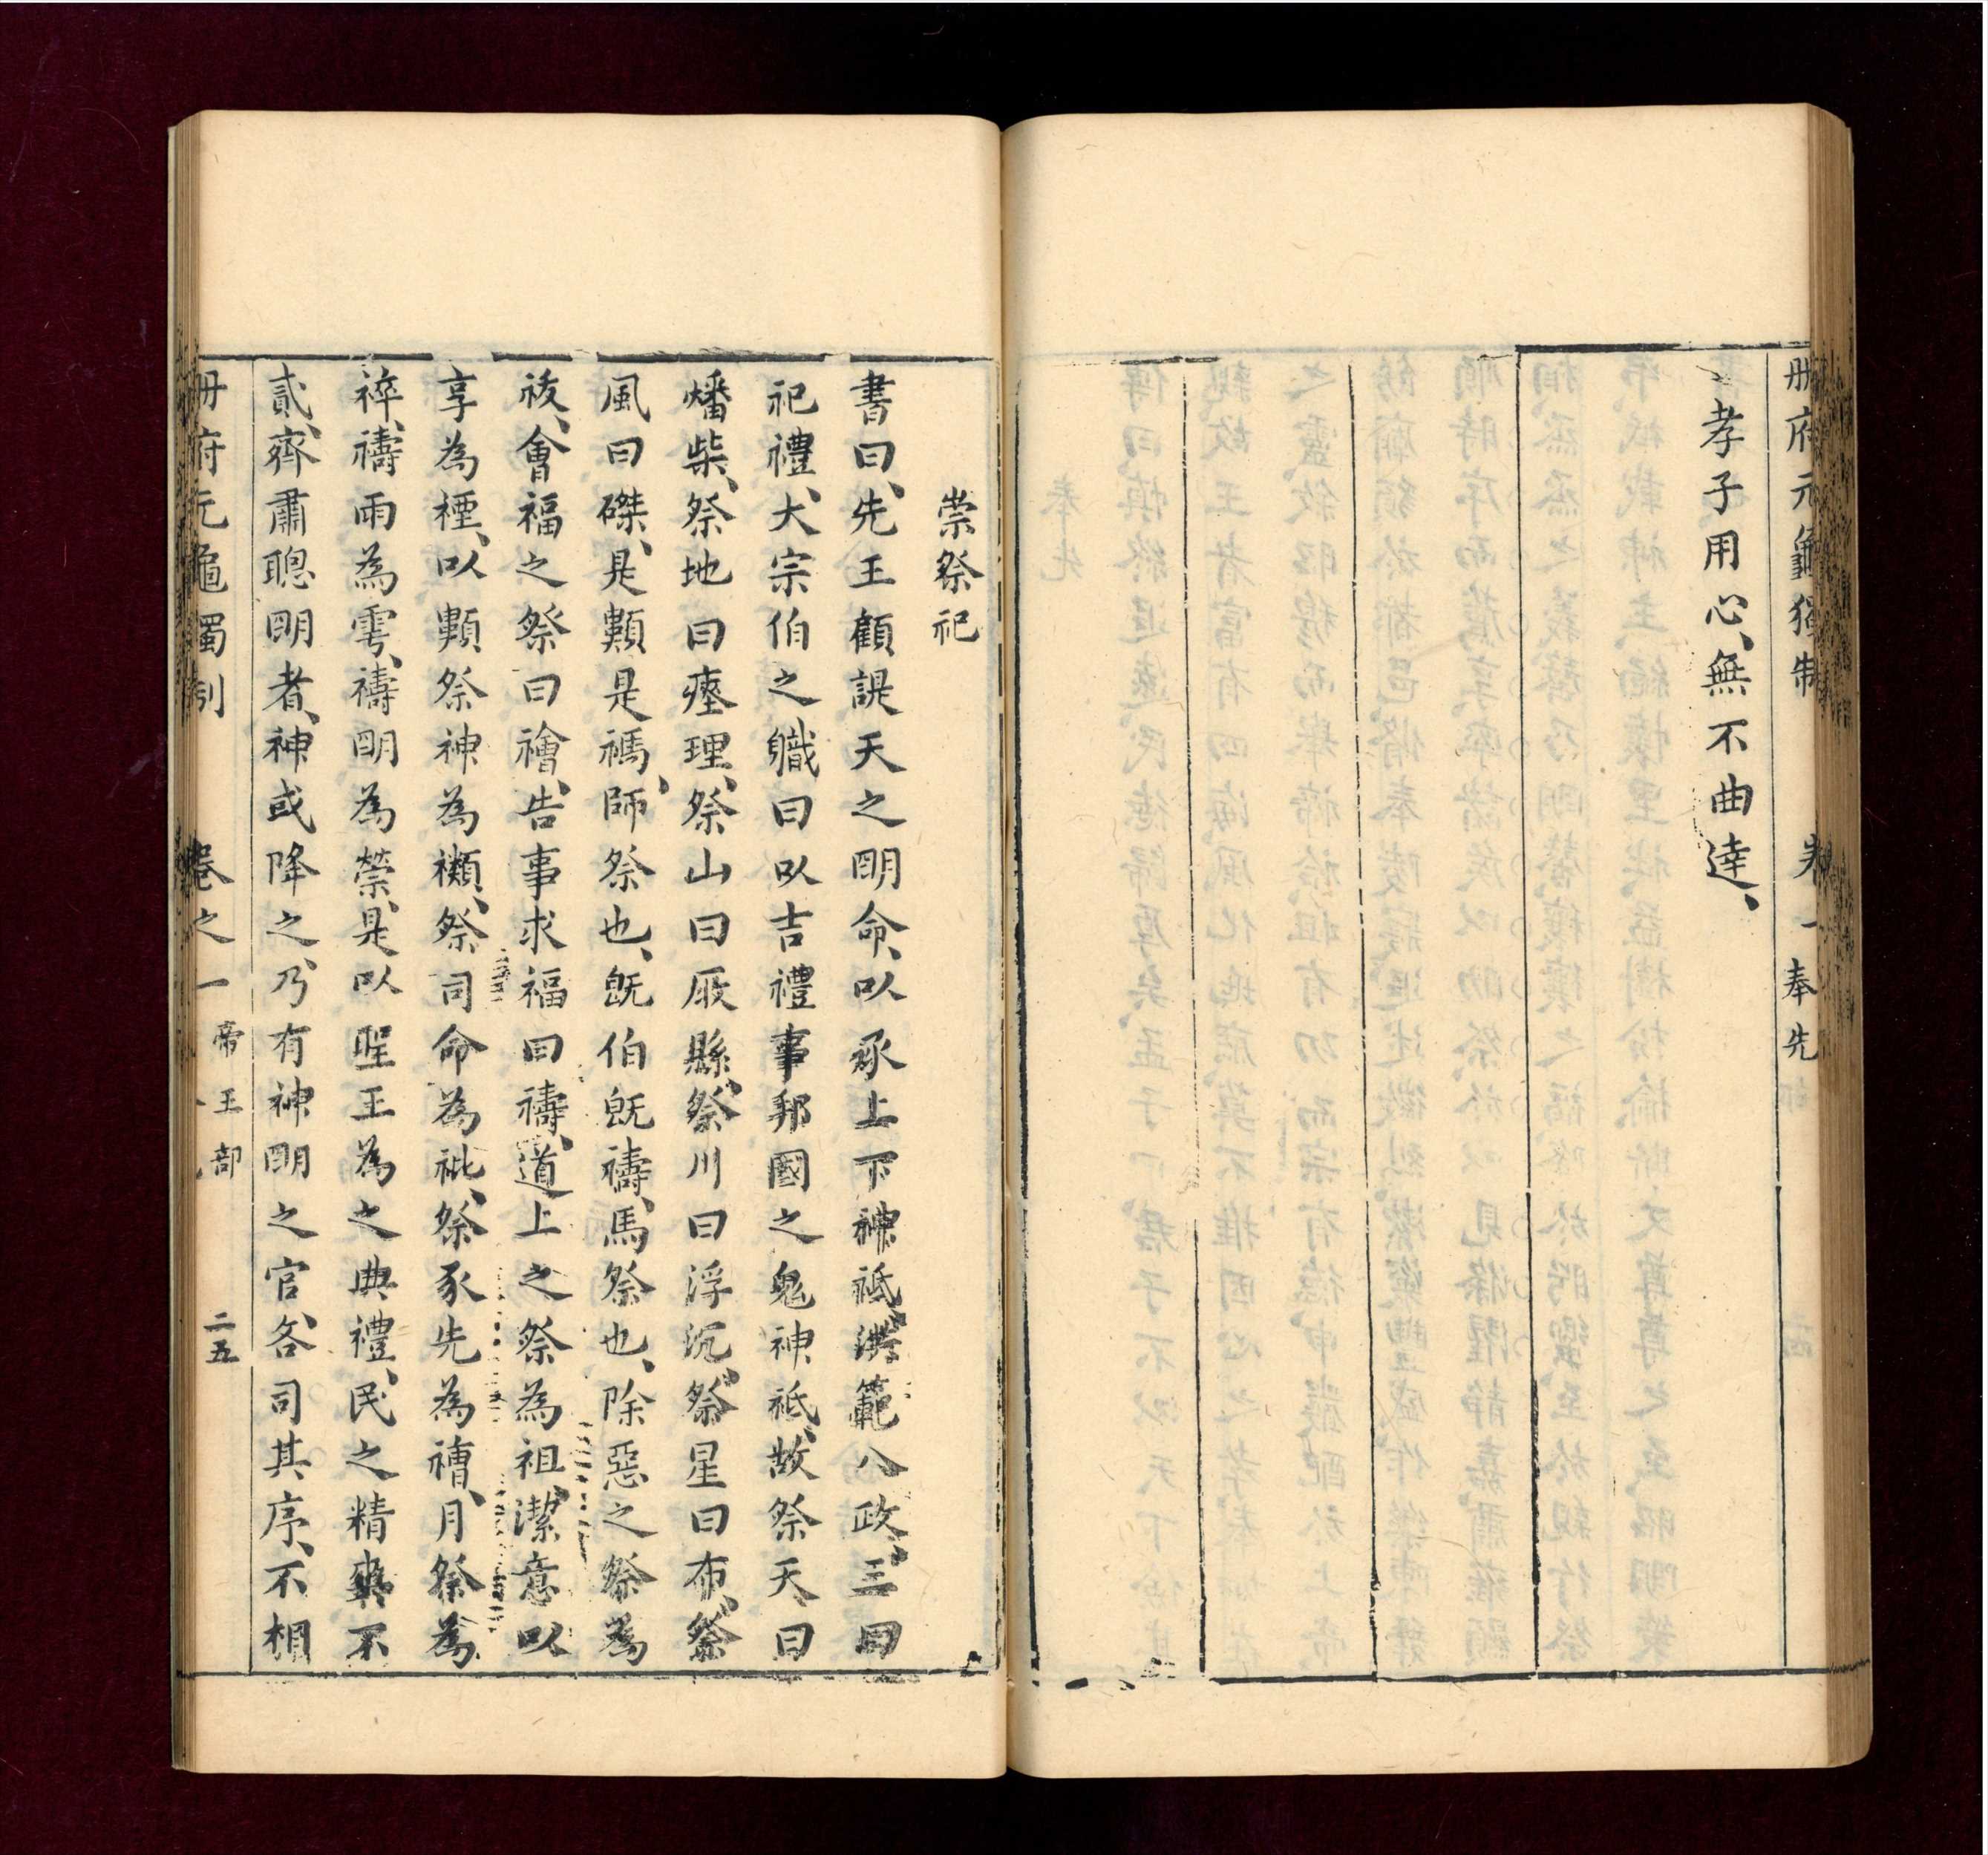 册府元龜獨制 卷一奉先
孝子用心、無不曲達、
崇祭祀
書曰、先王顧諟天之明命、以承上下神祗、洪範八政、三曰
祀禮、大宗伯之職曰以吉禮事邦國之鬼神祗、故祭天曰
燔柴、祭地曰瘞埋、祭山曰庪縣、祭川曰浮沉、祭星曰布、祭
風曰磔、是類是禡、師祭也、既伯既禱、馬祭也、除惡之祭為
祓、會福之祭曰禬、告事求福曰禱、道上之祭為祖、潔意以
享為禋、以類祭神為禷、祭司命為祉、祭豕先為禮、月祭為
祽、禱雨為雩、禱明為禜、是以聖王為之典禮、民之精爽不
貳、齊肅聰明者、神或降之、乃有神明之官、各司其序、不相
册府元龜獨制 卷之一 帝王部 二五